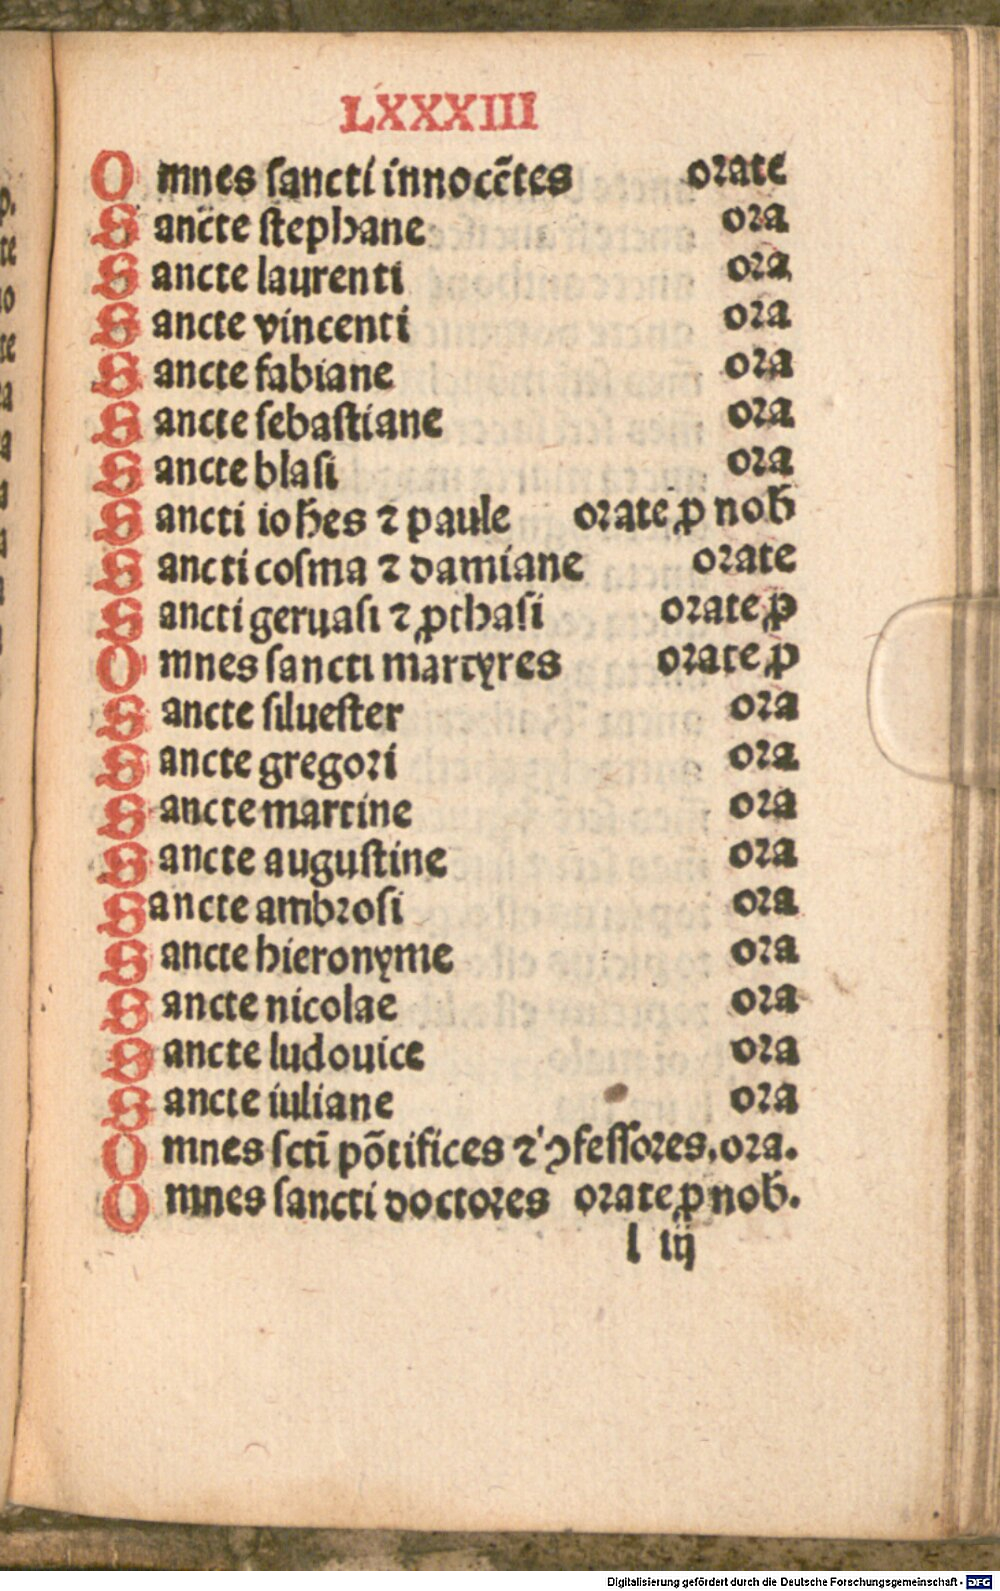 LXXXIII
Omnes ſancti innocẽtes orate
Sancte ſtephane ora
Sancte laurenti ora
Sancte vincenti ora
Sancte fabiane ora
Sancte ſebaſtiane ora
Sancte blaſi ora
Sancti ioħes ⁊ paule orate ꝓ nob̄
Sancti coſma ⁊ damiane orate
Sancti geruaſi ⁊ ꝓthaſi orate ꝓ
Omnes ſancti martyres orate ꝓ
Sancte ſilueſter ora
Sancte gregori ora
Sancte martine ora
Sancte auguſtine ora
Sancte ambroſi ora
Sancte hieronyme ora
Sancte nicolae ora
Sancte ludouice ora
Sancte iuliane ora
Omnes ſctī põtifices ⁊ ↄfeſſores. ora.
Omnes ſancti doctores orate ꝓ nob̄.
l iij
Digitalisierung gefördert durch die Deutsche Forschungsgemeinschaft - DFG